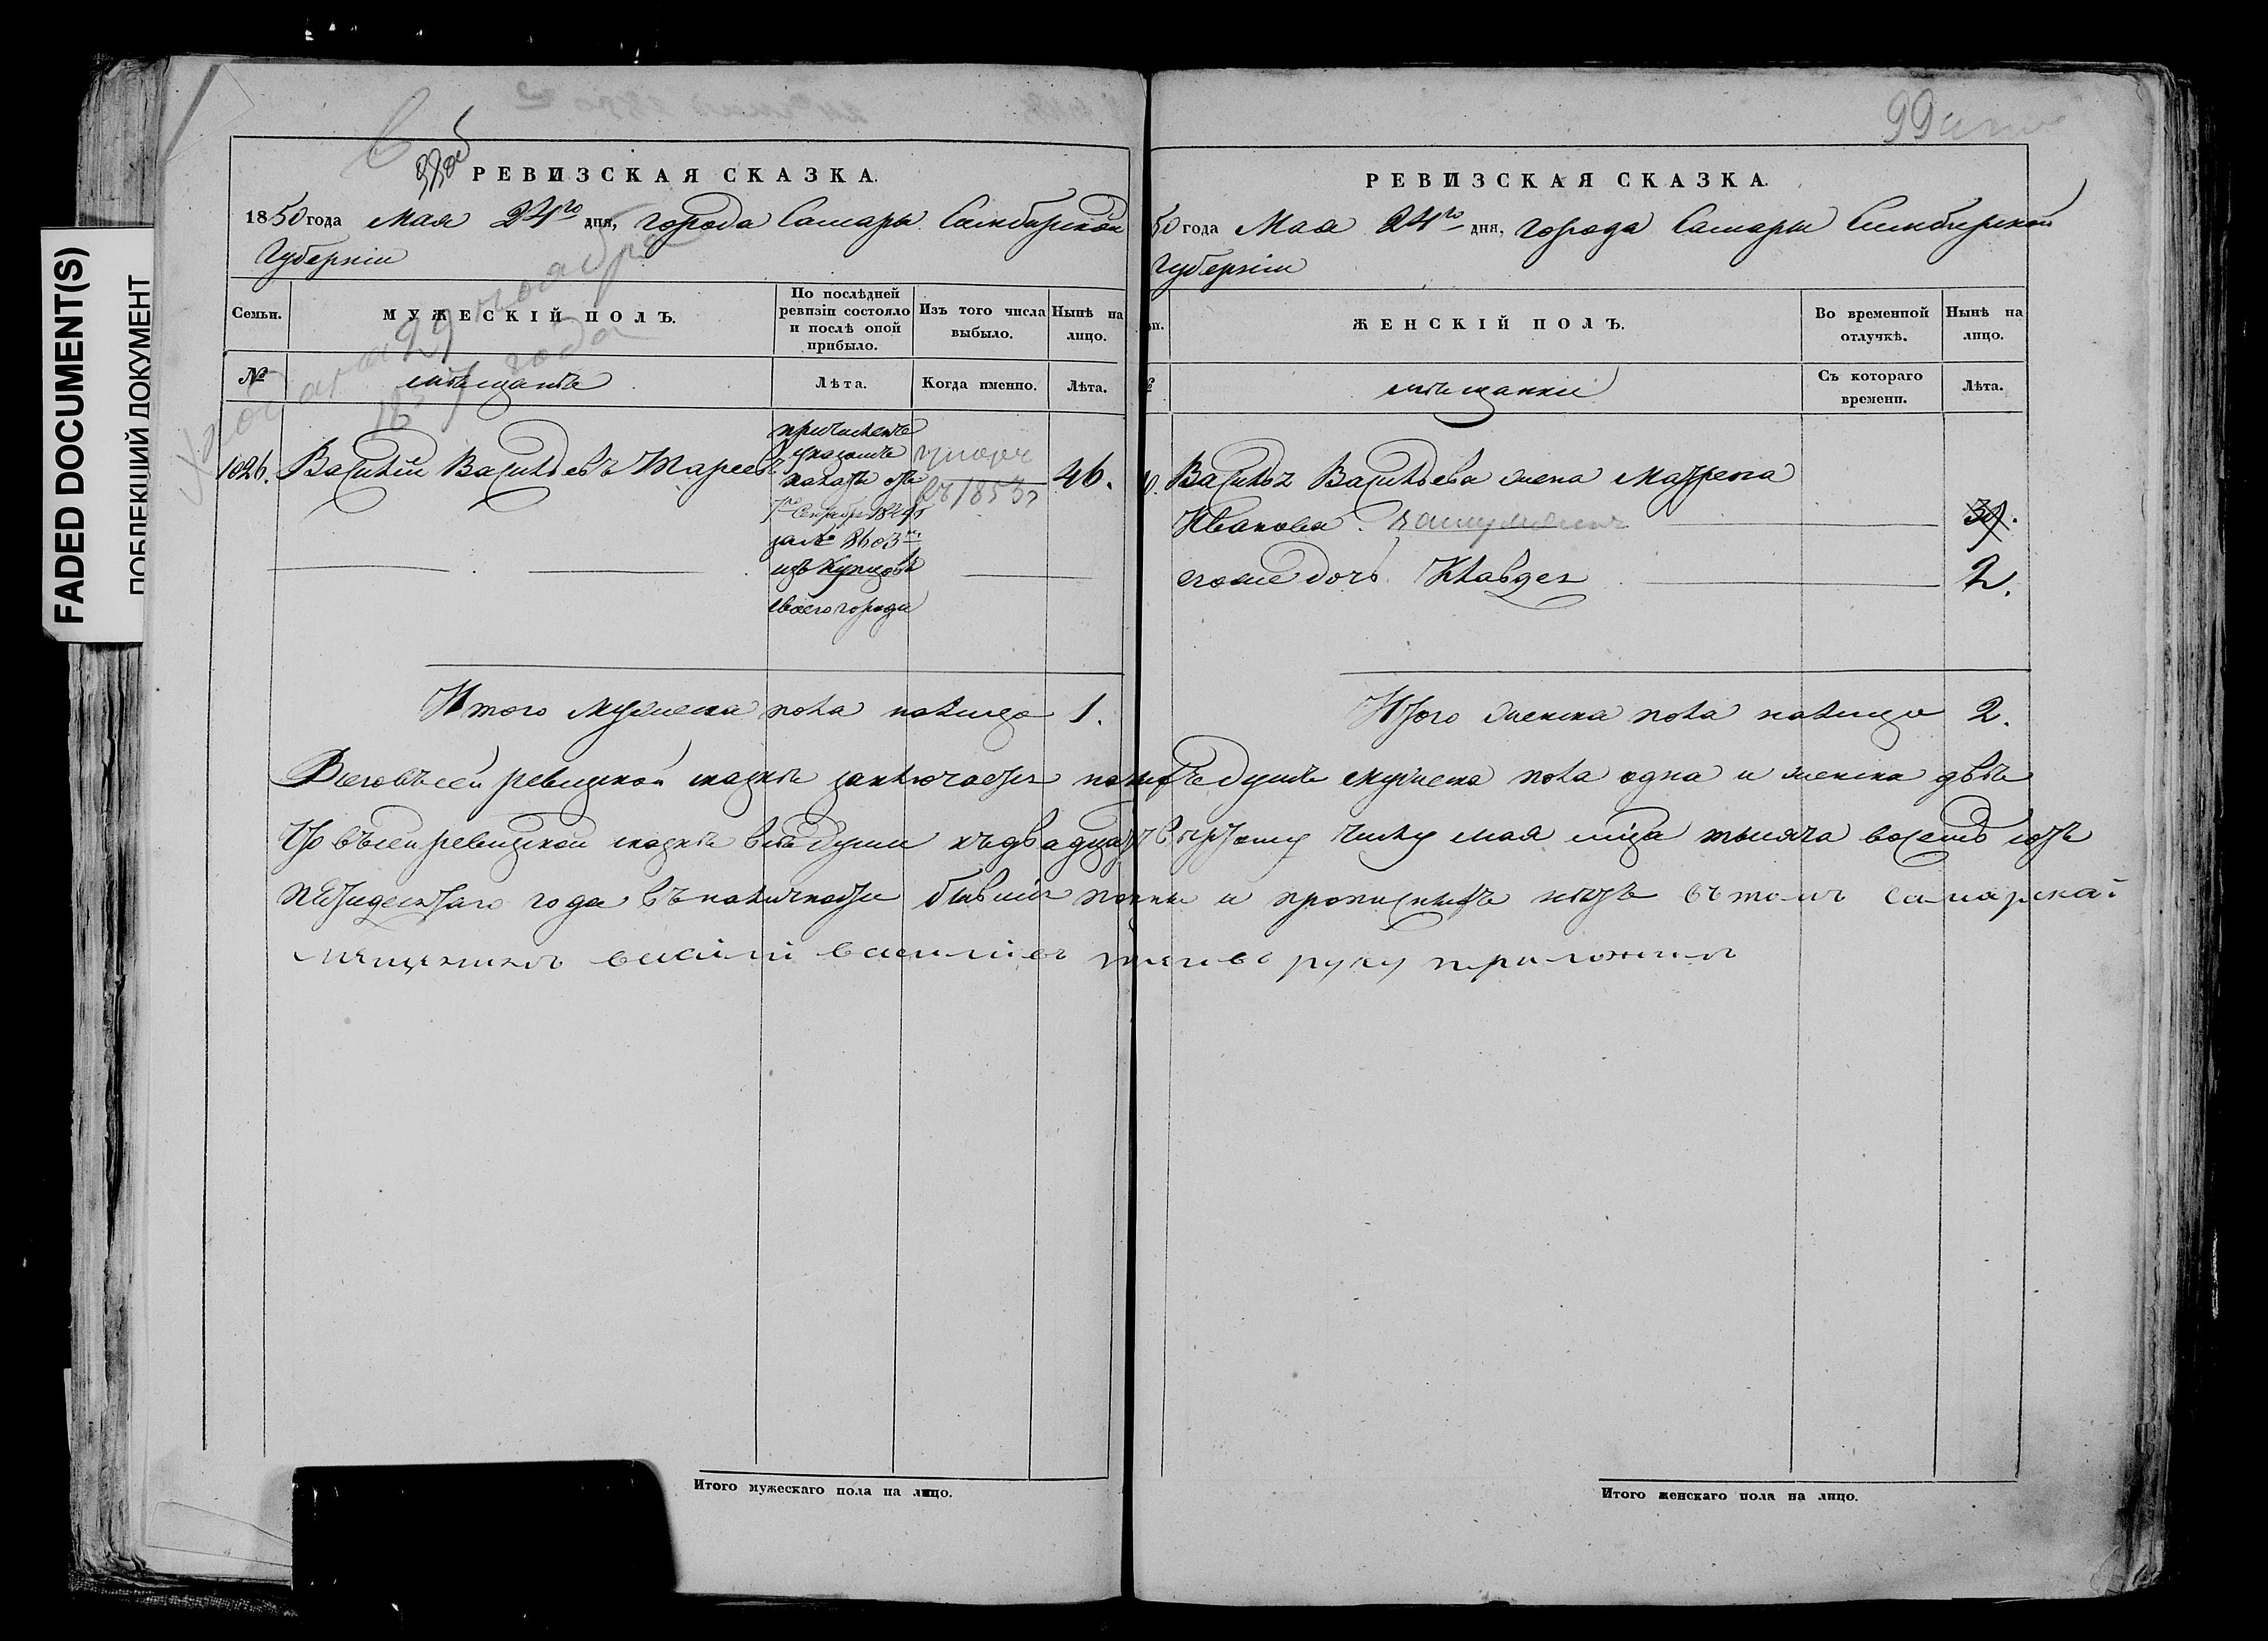 FADED DOCUMENT(S)
ПОБЛЕКШИЙ ДОКУМЕНТ
РЕВИЗСКАЯ СКАЗКА.
1850 года Мая 24го дня, города Самары Симбирской
Губернiи
Семьи.
МУЖЕСКIЙ ПОЛЪ.
По послѣдней ревизiи состояло и послѣ оной прибыло.
Изъ того числа выбыло.
Нынѣ на лицо.
№
мѣщанѣ
Лѣта.
Когда именно.
Лѣта.
1026.
Василiй Васильевъ
причисленъ
указомъ
палаты отъ
за № 8603м
изъ купцовъ
своего города
умеръ
въ 1853
46.
Итого мужеска пола налицо 1.
Итого мужескаго пола на лицо.
99
РЕВИЗСКАЯ СКАЗКА.
50 года Мая 24го дня, города Самары Симбирской
Губернiи
ЖЕНСКIЙ ПОЛЪ.
Во временной отлучкѣ.
Нынѣ на лицо.
мѣщанки
Съ котораго времени.
Лѣта.
Василья Васильева жена Матрена
Иванова
егоже дочь Клавдея
2.
Итого женска пола налицо 2.
Всего въ сей ревизкой сказкѣ заключается налицо душъ мужеска пола одна и женска двѣ
Что въ сей ревизкой сказкѣ всѣ души къ двадцать четвертому числу мая мѣца тысяча восемь сотъ
пятидесятаго года въ наличности бывшiя показаны и прописныхъ нѣтъ въ томъ самарской
мещининъ василiй василiевъ руку приложилъ
Итого женскаго пола на лицо.